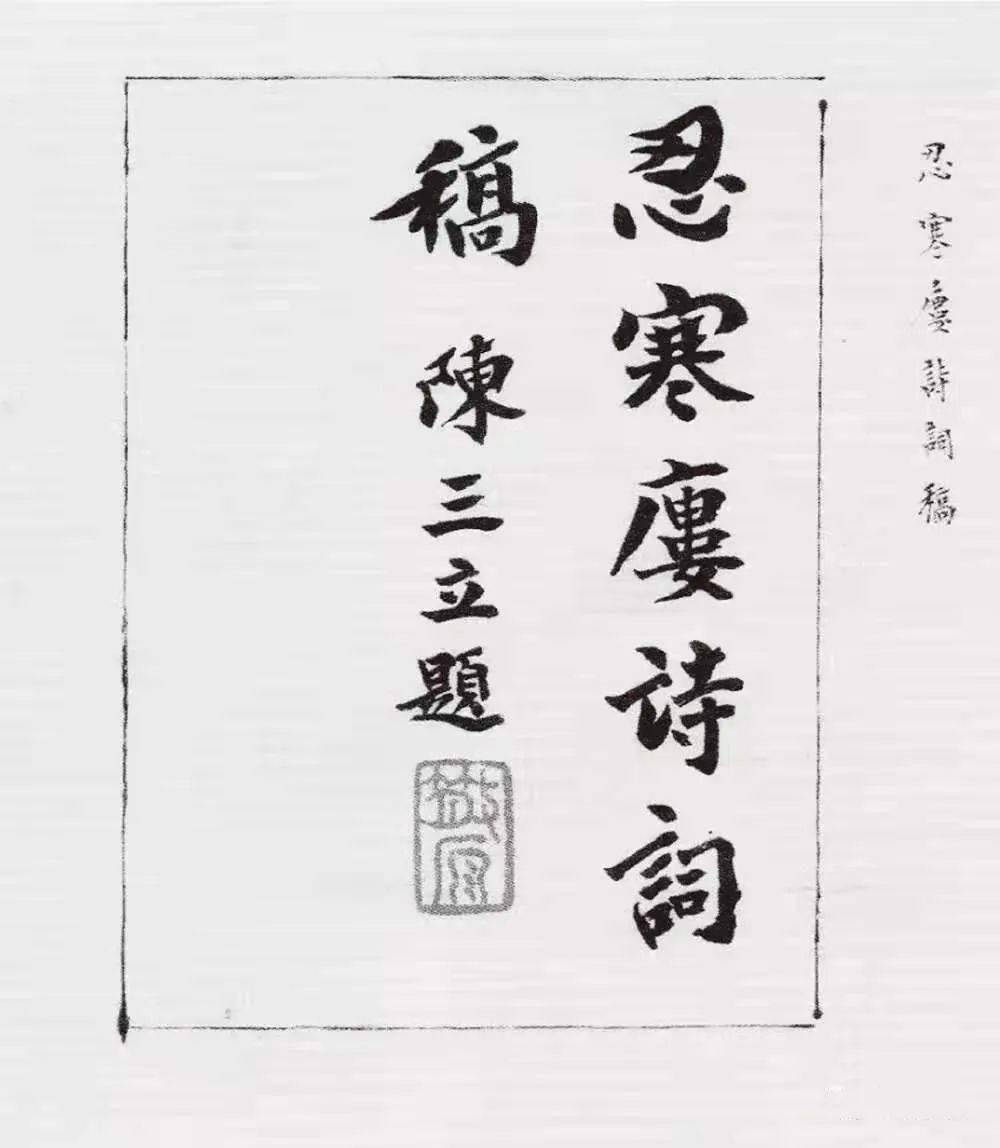 忍寒廔詩詞稿
忍寒廔詩詞
稿 陳三立題
散原